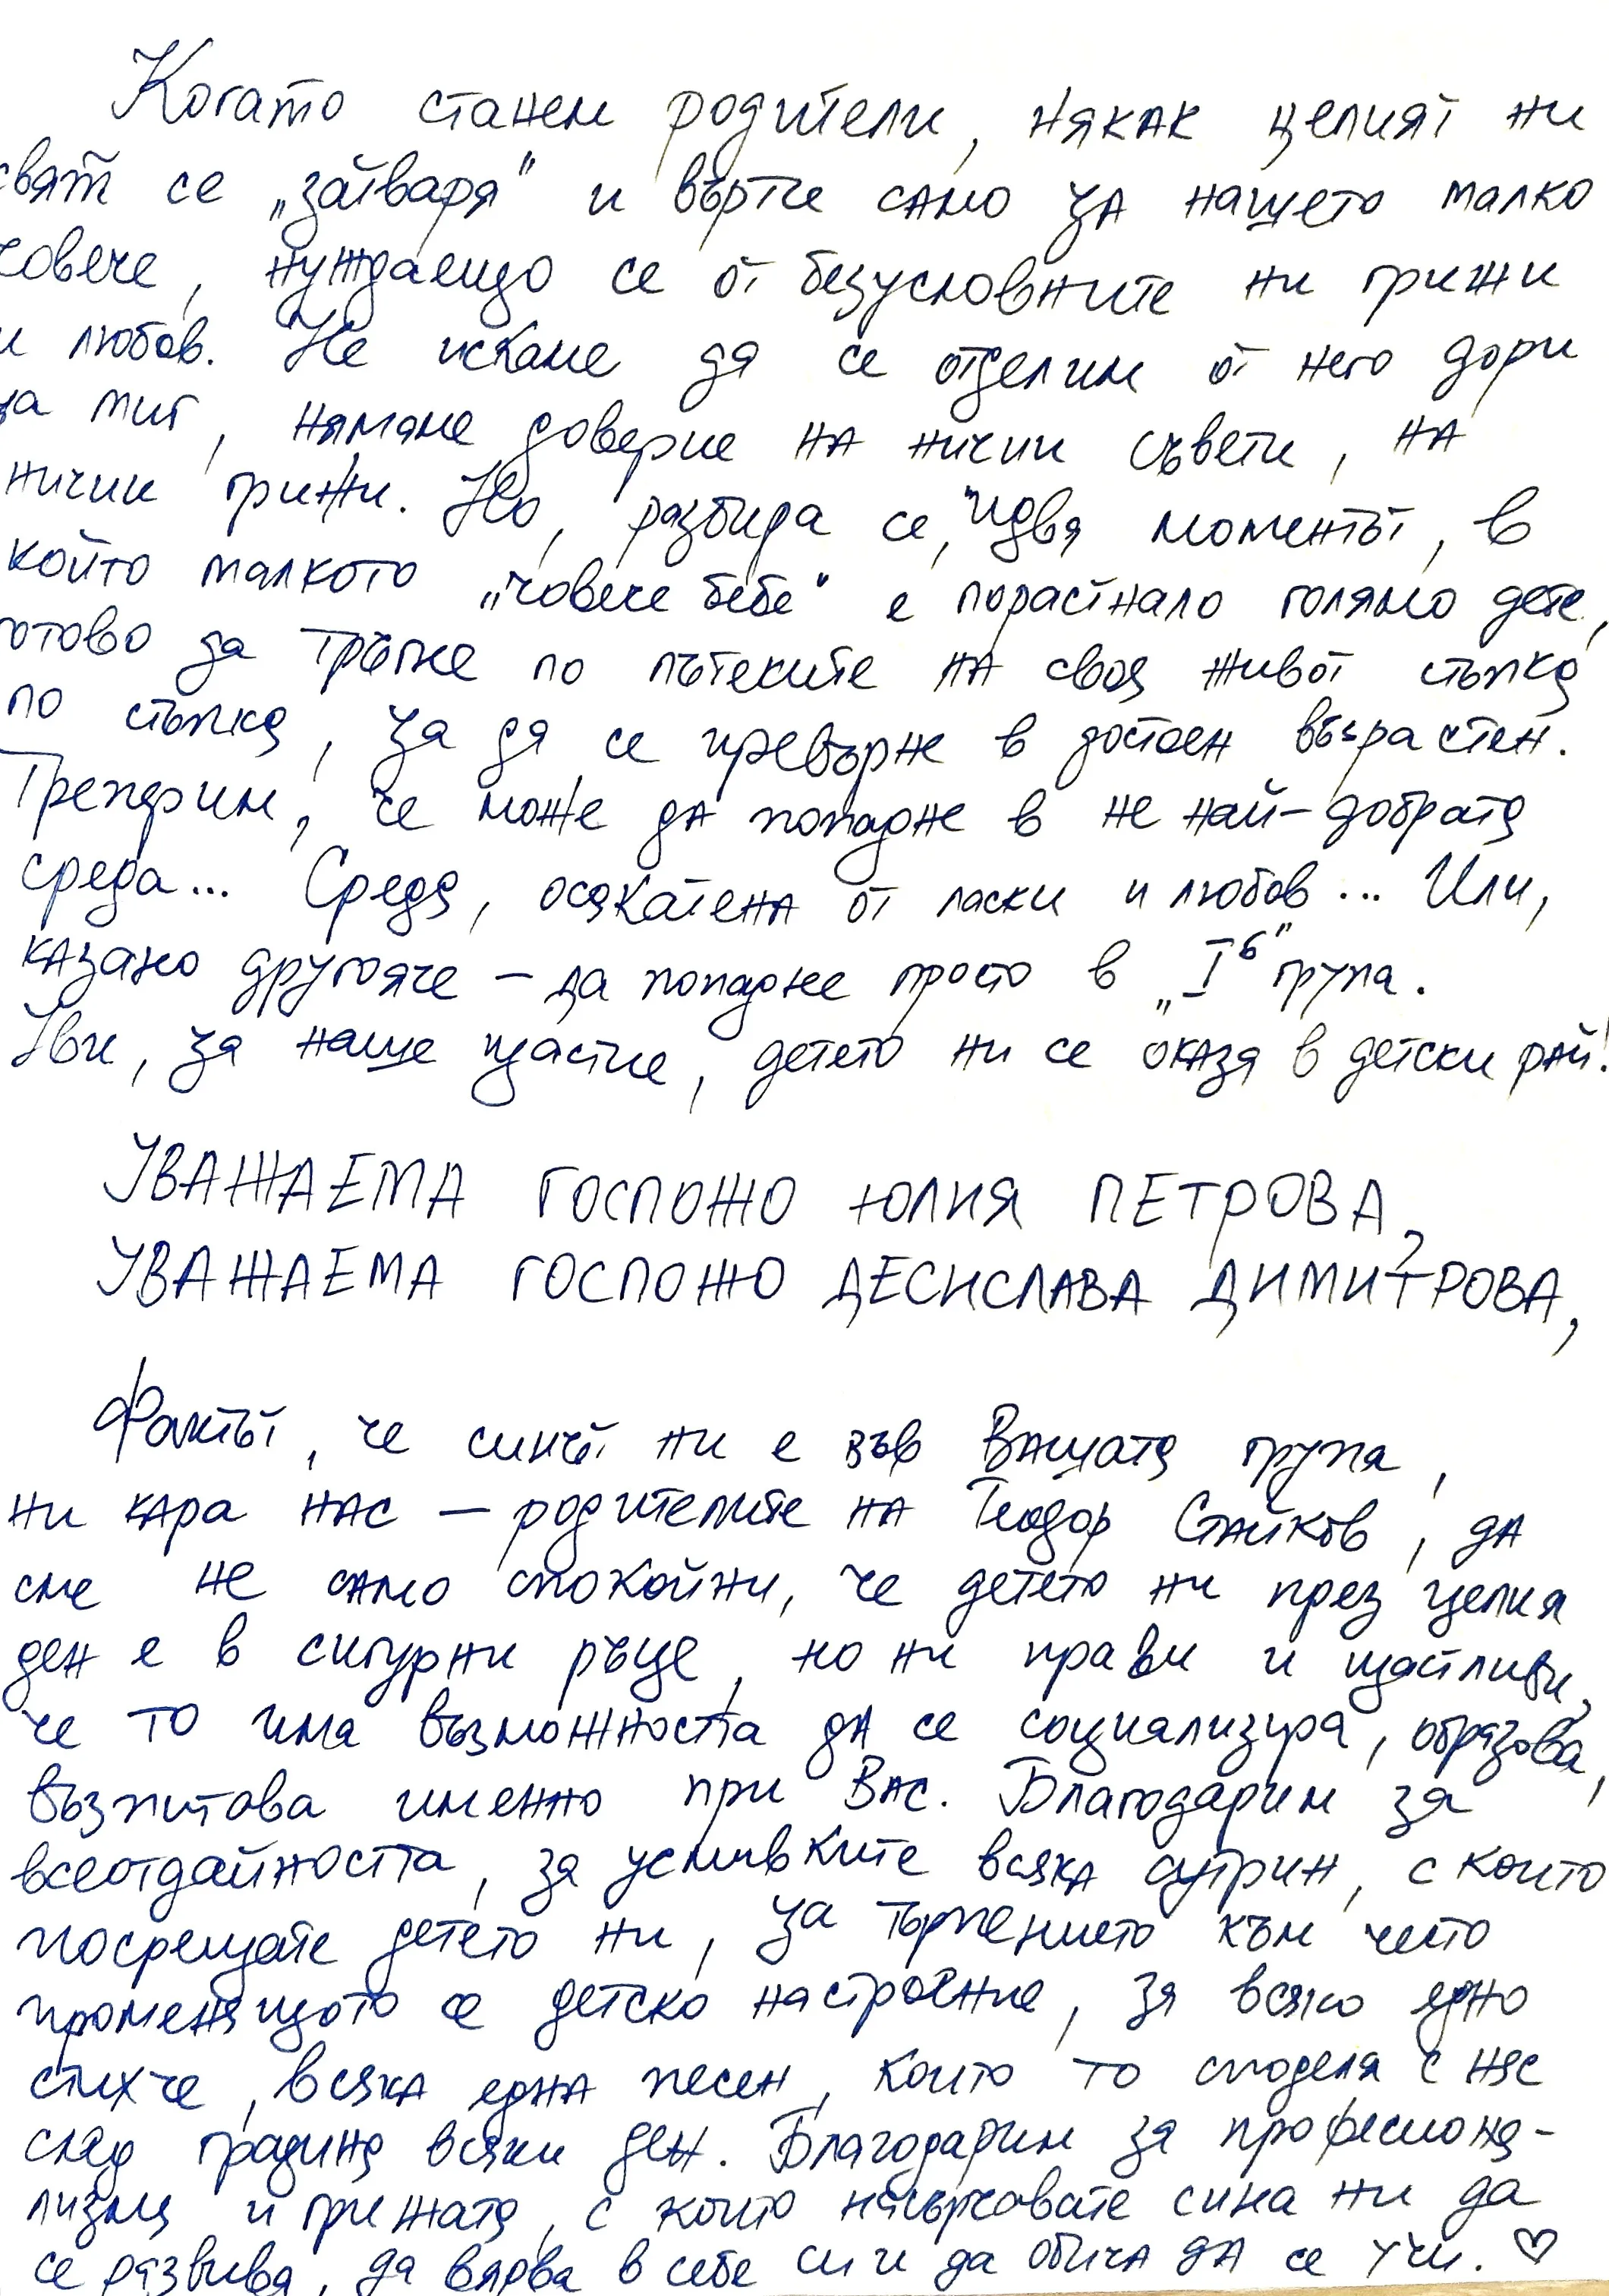 Когато станем родители, някак целият ни
свят се „затваря“ и върти само за нашето малко
човече, нуждаещо се от безусловните ни грижи
и любов. Не искаме да се отделим от него дори
за миг, нямаме доверие на ничии съвети, на
ничии грижи. Но, разбира се, идва моментът, в
който малкото „човече бебе“ е пораснало голямо дете,
готово да тръгне по пътеките на своя живот стъпка
по стъпка, за да се превърне в достоен възрастен.
Треперим, че може да попадне в не най-добрата
среда... Среда, осакатена от ласки и любов... Или,
казано другояче – да попадне просто в „I б“ група.
Уви, за наше щастие, детето ни се оказа в детски рай!
УВАЖАЕМА ГОСПОЖО ЮЛИЯ ПЕТРОВА,
УВАЖАЕМА ГОСПОЖО ДЕСИСЛАВА ДИМИТРОВА,
Фактът, че синът ни е във Вашата група,
ни кара нас – родителите на Теодор Стайков, да
сме не само спокойни, че детето ни през целия
ден е в сигурни ръце, но ни прави и щастливи,
че то има възможността да се социализира, образова,
възпитава именно при Вас. Благодарим за
всеотдайността, за усмивките всяка сутрин, с които
посрещате детето ни, за търпението към често
променящото се детско настроение, за всяко едно
стихче, всяка една песен, които то споделя с нас
след градина всеки ден. Благодарим за професиона-
лизма и грижата, с които насърчавате сина ни да
се развива, да вярва в себе си и да обича да се учи. ♡